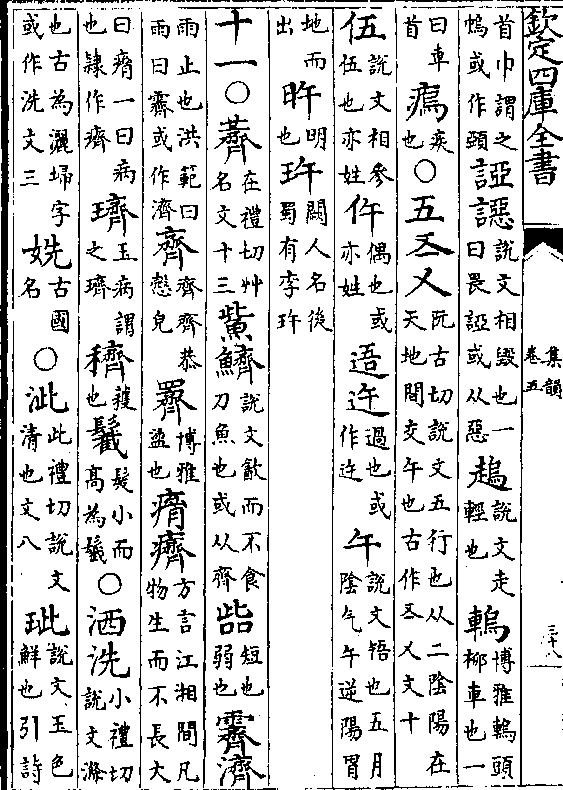 欽定四庫全書
集韻
卷五
三十八
首巾謂之或作頭誈䜑說文相毀也一曰畏誈或从惡說文走輕也博雅頭枊車也一
曰車首疾也○五𠄡㐅阮古切說文五行也从二陰陽在天地間交午也古作𠄡㐅文十
伍說文相參伍也亦姓仵偶也或亦姓逜迕過也或作迕午說文牾也五月陰气午逆陽冒
地而出旿明也玝闕人名後蜀有李玝
十一○薺在禮切艸名文十三鮆鱭說文飲而不食刀魚也或从齊啙短也弱也霽濟
雨止也洪範曰雨曰霽或作濟齊齊齊恭愨皃博雅也癠方言江湘間凡物生而不長大
曰癠一曰病也隸作癠璾玉病謂之璾穧穫也髮小而高為○洒洗小禮切說文滌
也古為灑埽字或作洗文三姺古國名○泚此禮切說文清也文八玼說文玉色鮮也引詩